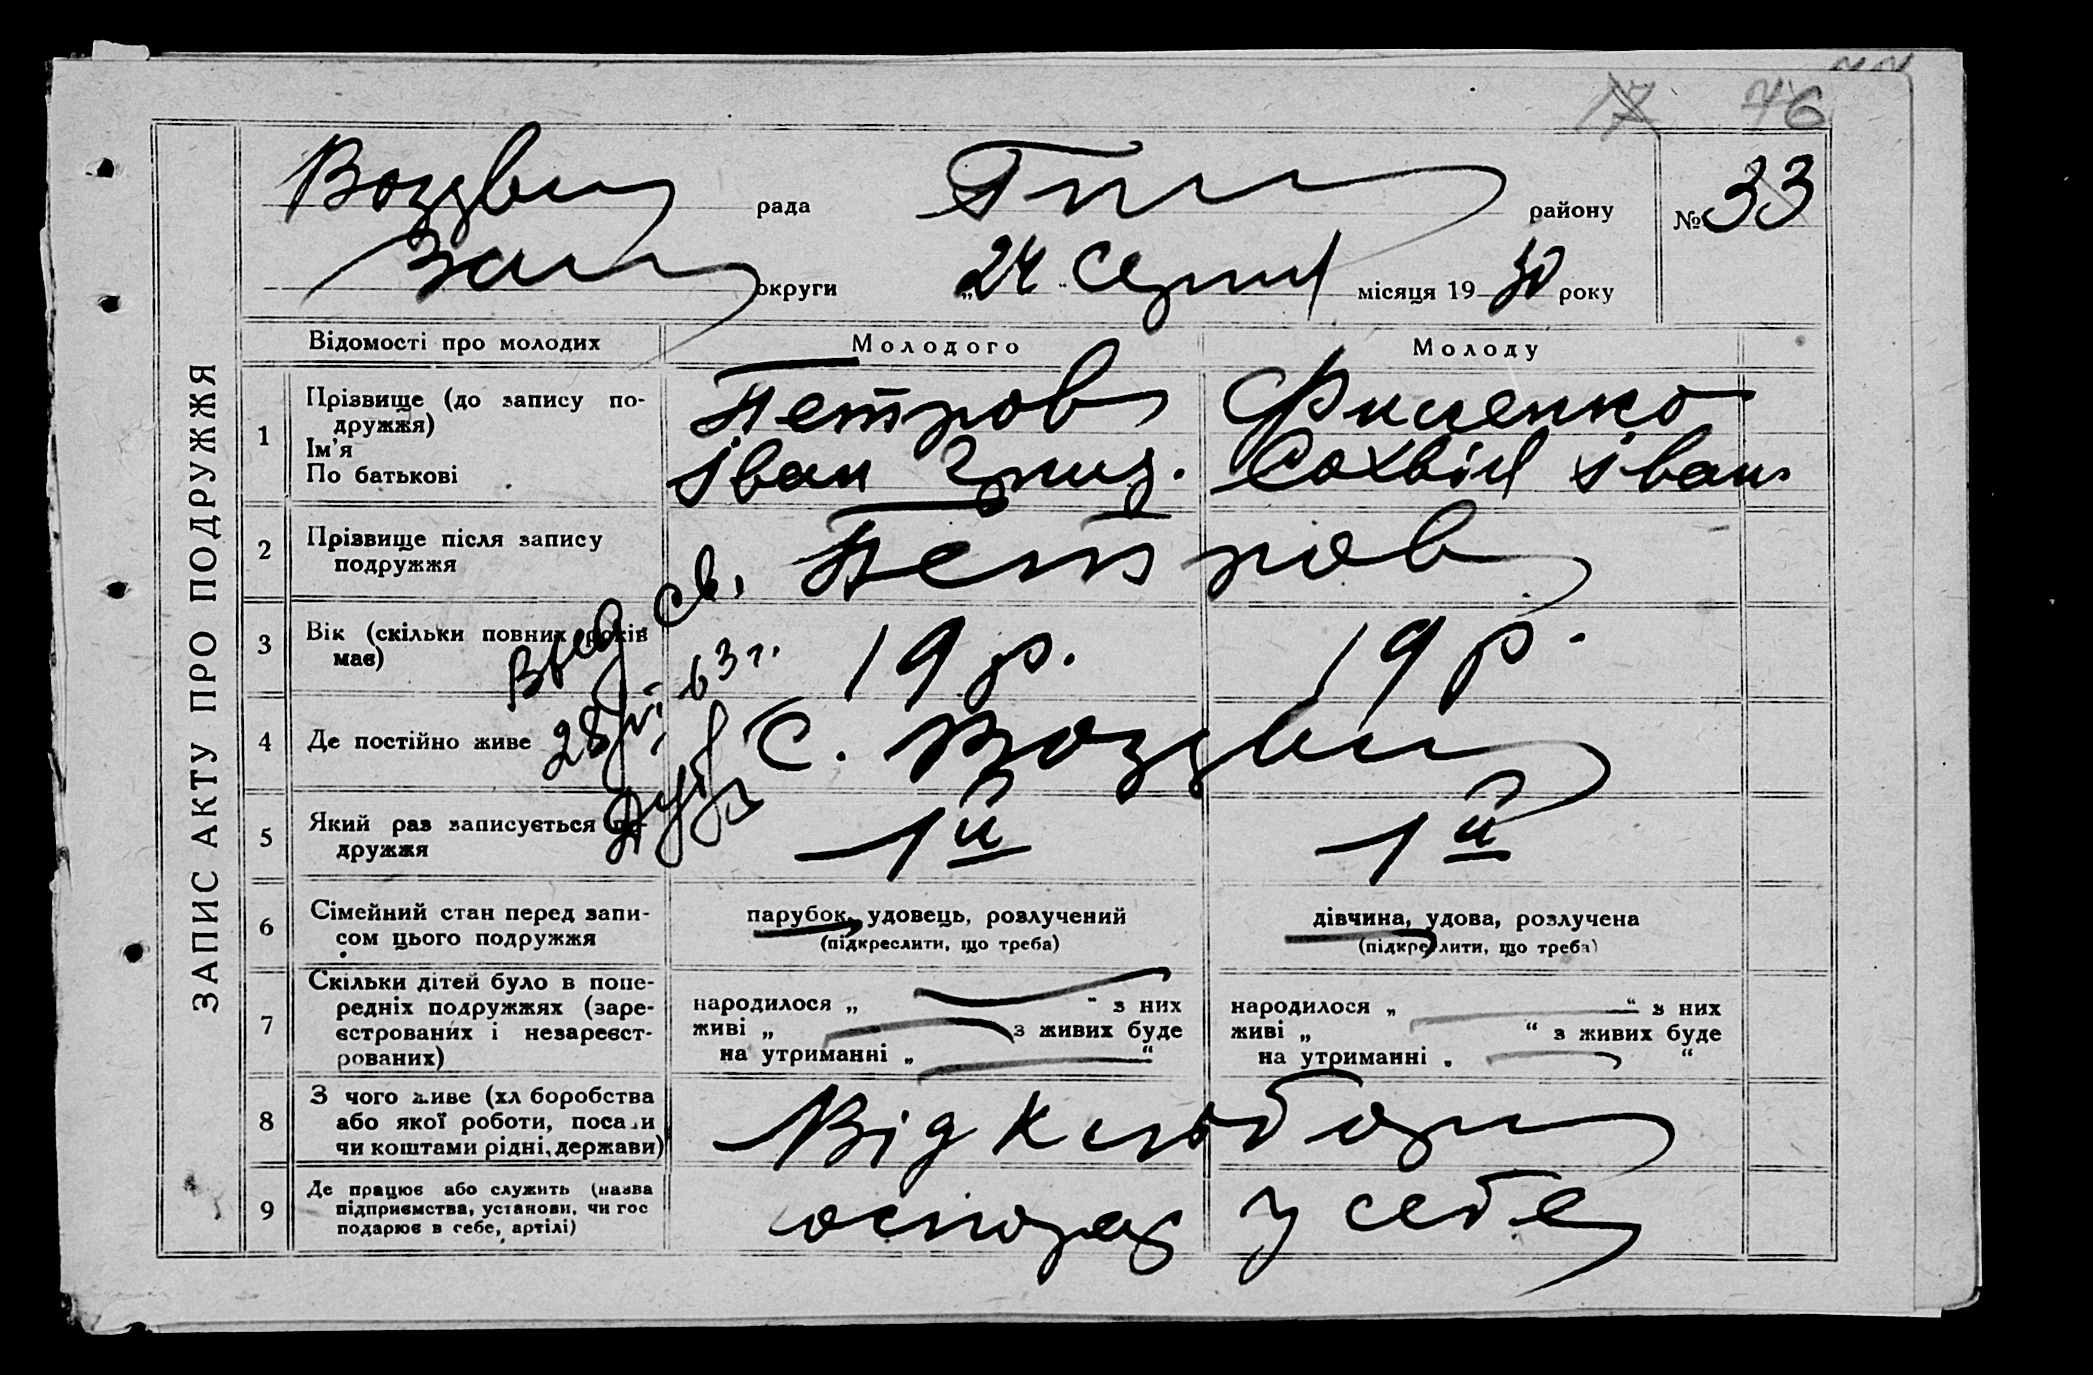 17 76
Воздви рада Гпи району № 33
Зап округи „24 серпня місяця 1930 року
ЗАПИС АКТУ ПРО ПОДРУЖЖЯ
Відомості про молодих Молодого Молоду
1 Прізвище (до запису по-
дружжя) Петров
Ім'я
По батькові Іван Григ. Сохвія Іван
2 Прізвище після запису
подружжя Петров
3 Вік (скільки повних років
має) 19 р. 19 р.
Выд св.
28 63 г.
4 Де постійно живе С. Воздви
5 Який раз записується по-
дружжя 1й 1й
6 Сімейний стан перед запи-
сом цього подружжя
парубок, удовець, розлучений
(підкреслити, що треба)
дівчина, удова, розлучена
(підкреслити, що треба)
7 Скільки дітей було в попе-
редніх подружжях (заре-
єстрованих і незареєст-
рованих)
народилося „ “ з них
живі „ з живих буде
на утриманні „ “
народилося „ “ з них
живі „ “ з живих буде
на утриманні „ “
8 З чого живе (хліборобства
або якої роботи, посади
чи коштами рідні, держави)
Від
9 Де працює або служить (назва
підприємства, установи, чи гос
подарює в себе, артілі)
у себе